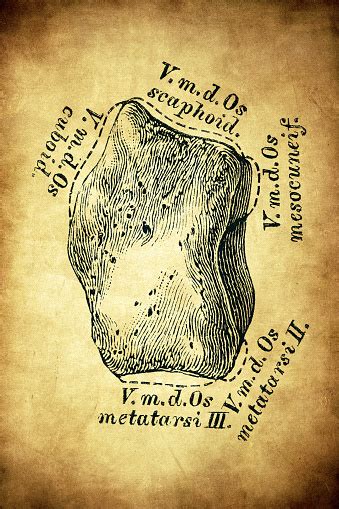 V. m. d. Os
scaphoid.
V. m. d. Os
cuboid.
V. m. d. Os
mesocuneif.
V. m. d. Os
metatarsi II.
V. m. d. Os
metatarsi III.